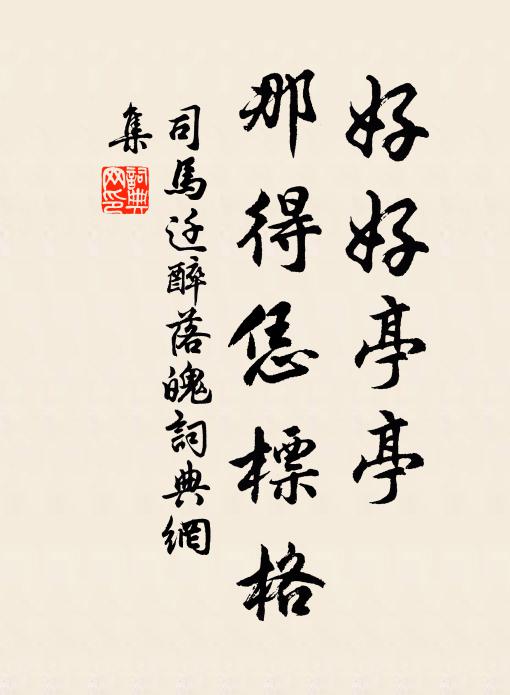 好好亭亭
那得恁標格
司馬迁醉落魄詞典網
集
詞典网印